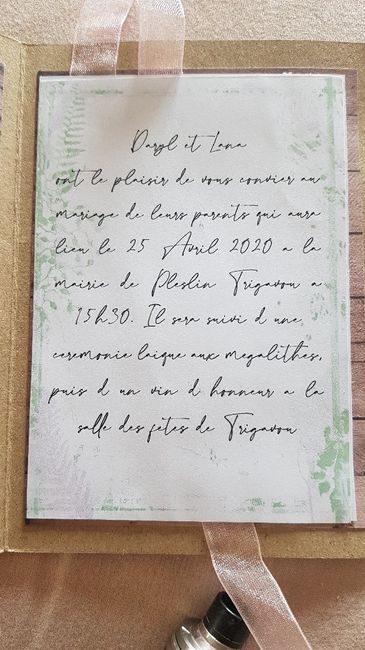 Daryl et Lana
ont le plaisir de vous convier au
mariage de leurs parents qui aura
lieu le 25 Avril 2020 a la
mairie de Pleslin Trigavou a
15h30. Il sera suivi d une
ceremonie laique aux megalithes,
puis d un vin d honneur a la
salle des fetes de Trigavou